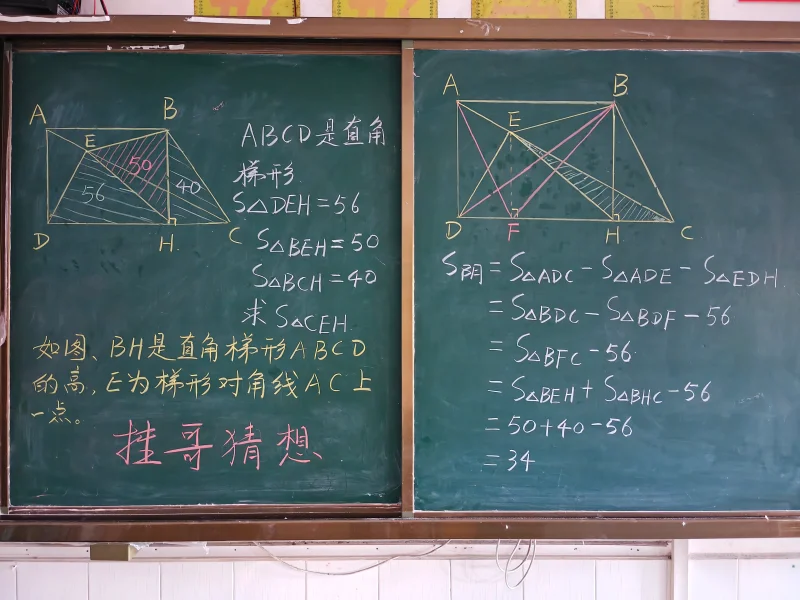 A B
E
50
56
40
D H. C
ABCD是直角
梯形.
S△DEH=56
S△BEH=50
S△BCH=40
求S△CEH.
如图、BH是直角梯形ABCD
的高,E为梯形对角线AC上
一点。
挂哥猜想
A B
E
D F H C
S阴=S△ADC-S△ADE-S△EDH.
=S△BDC-S△BDF-56
=S△BFC-56.
=S△BEH+S△BHC-56
=50+40-56
=34